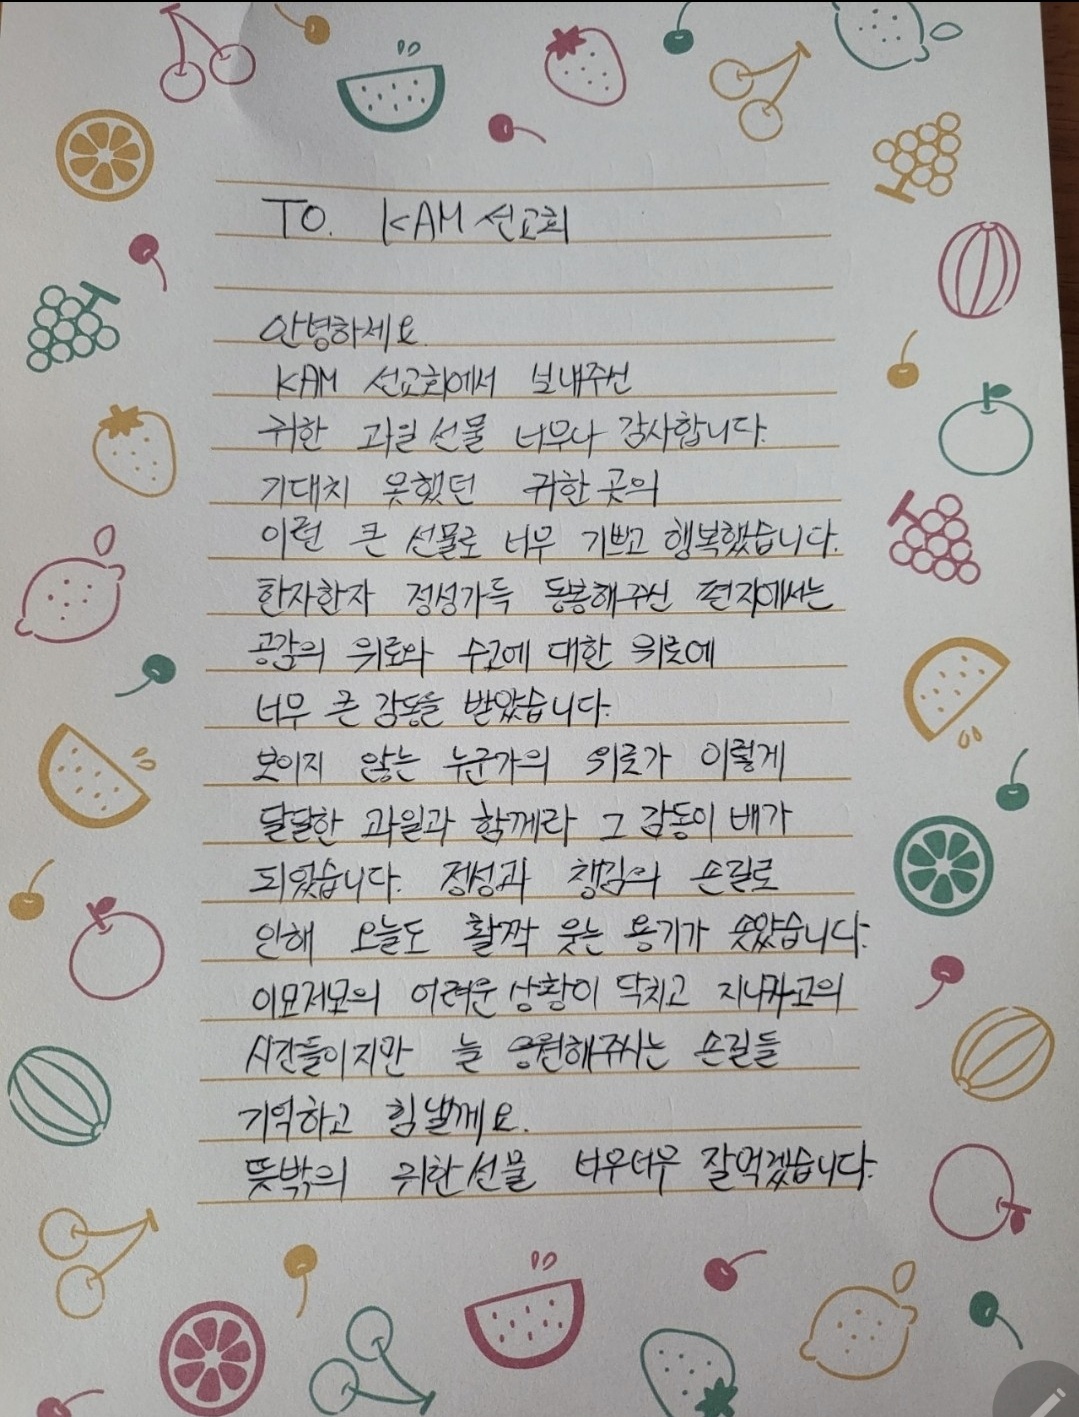 TO. KAM 선교회
안녕하세요.
KAM 선교회에서 보내주신
귀한 과일 선물 너무나 감사합니다.
기대치 못했던 귀한 곳의
이런 큰 선물로 너무 기쁘고 행복했습니다.
한자한자 정성가득 동봉해주신 편지에서는
공감의 위로와 수고에 대한 위로에
너무 큰 감동을 받았습니다.
보이지 않는 누군가의 위로가 이렇게
달달한 과일과 함께라 그 감동이 배가
되었습니다. 정성과 챙김의 손길로
인해 오늘도 활짝 웃는 용기가 솟았습니다.
이모저모의 어려운 상황이 닥치고 지나가고의
시간들이지만 늘 응원해주시는 손길들
기억하고 힘낼께요.
뜻밖의 귀한 선물 너무너무 잘먹겠습니다.